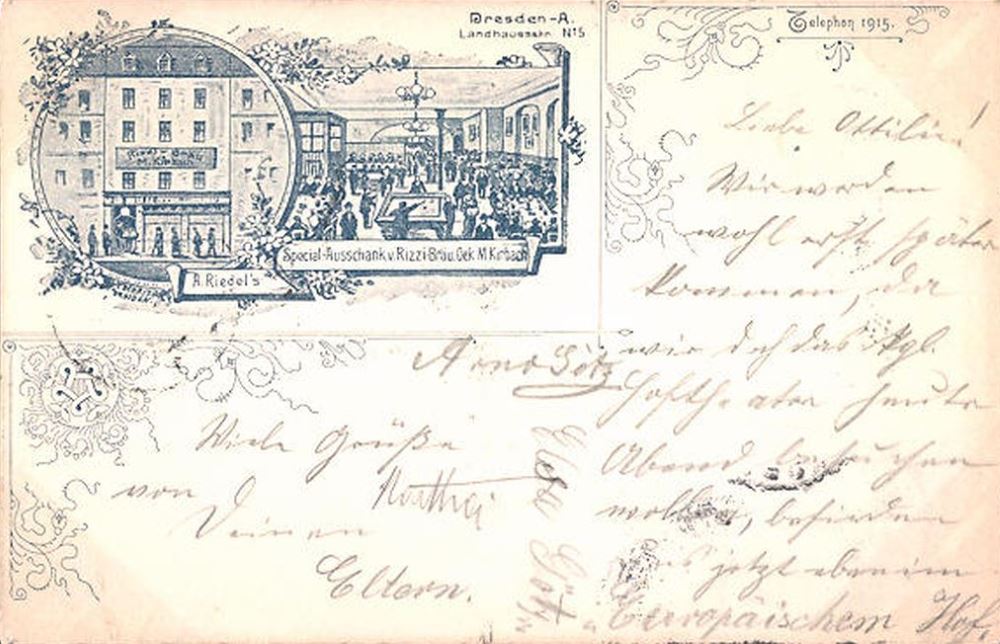 Dresden-A.
Landhausstr. No 5
Telephon 1915.
Rizzi-Bräu
M. Kirbach
Special-Ausschank v. Rizzi-Bräu, Oek. M. Kirbach
A. Riedel's
Liebe Ottilie!
Wir werden
wohl erst später
kommen, da
wir doch das Kgl.
Hoftheater heute
Abend besuchen
wollen, befinden
uns jetzt eben im
Europäischem Hof,
Arno Götz
Viele Grüße
von
Deinen
Eltern.
Elsa Götz